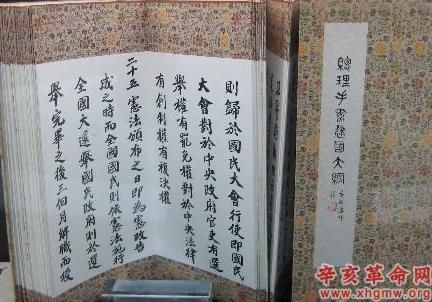 總理手書建國大綱
則歸於國民大會行使即國民
大會對於中央政府官吏有選
舉權有罷免權對於中央法律
有創制權有複決權
二十五憲法頒布之日即為憲政告
成之時而全國國民則依憲法施行
全國大選舉國民政府則於選
舉完畢之後三個月解職而授
辛亥革命网
http://www.xhgmw.org